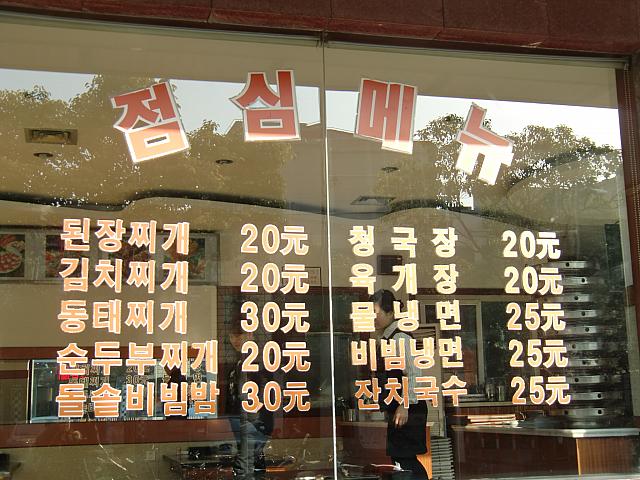 점심메뉴
된장찌개 20元
김치찌개 20元
동태찌개 30元
순두부찌개 20元
돌솥비빔밥 30元
청국장 20元
육개장 20元
물냉면 25元
비빔냉면 25元
잔치국수 25元